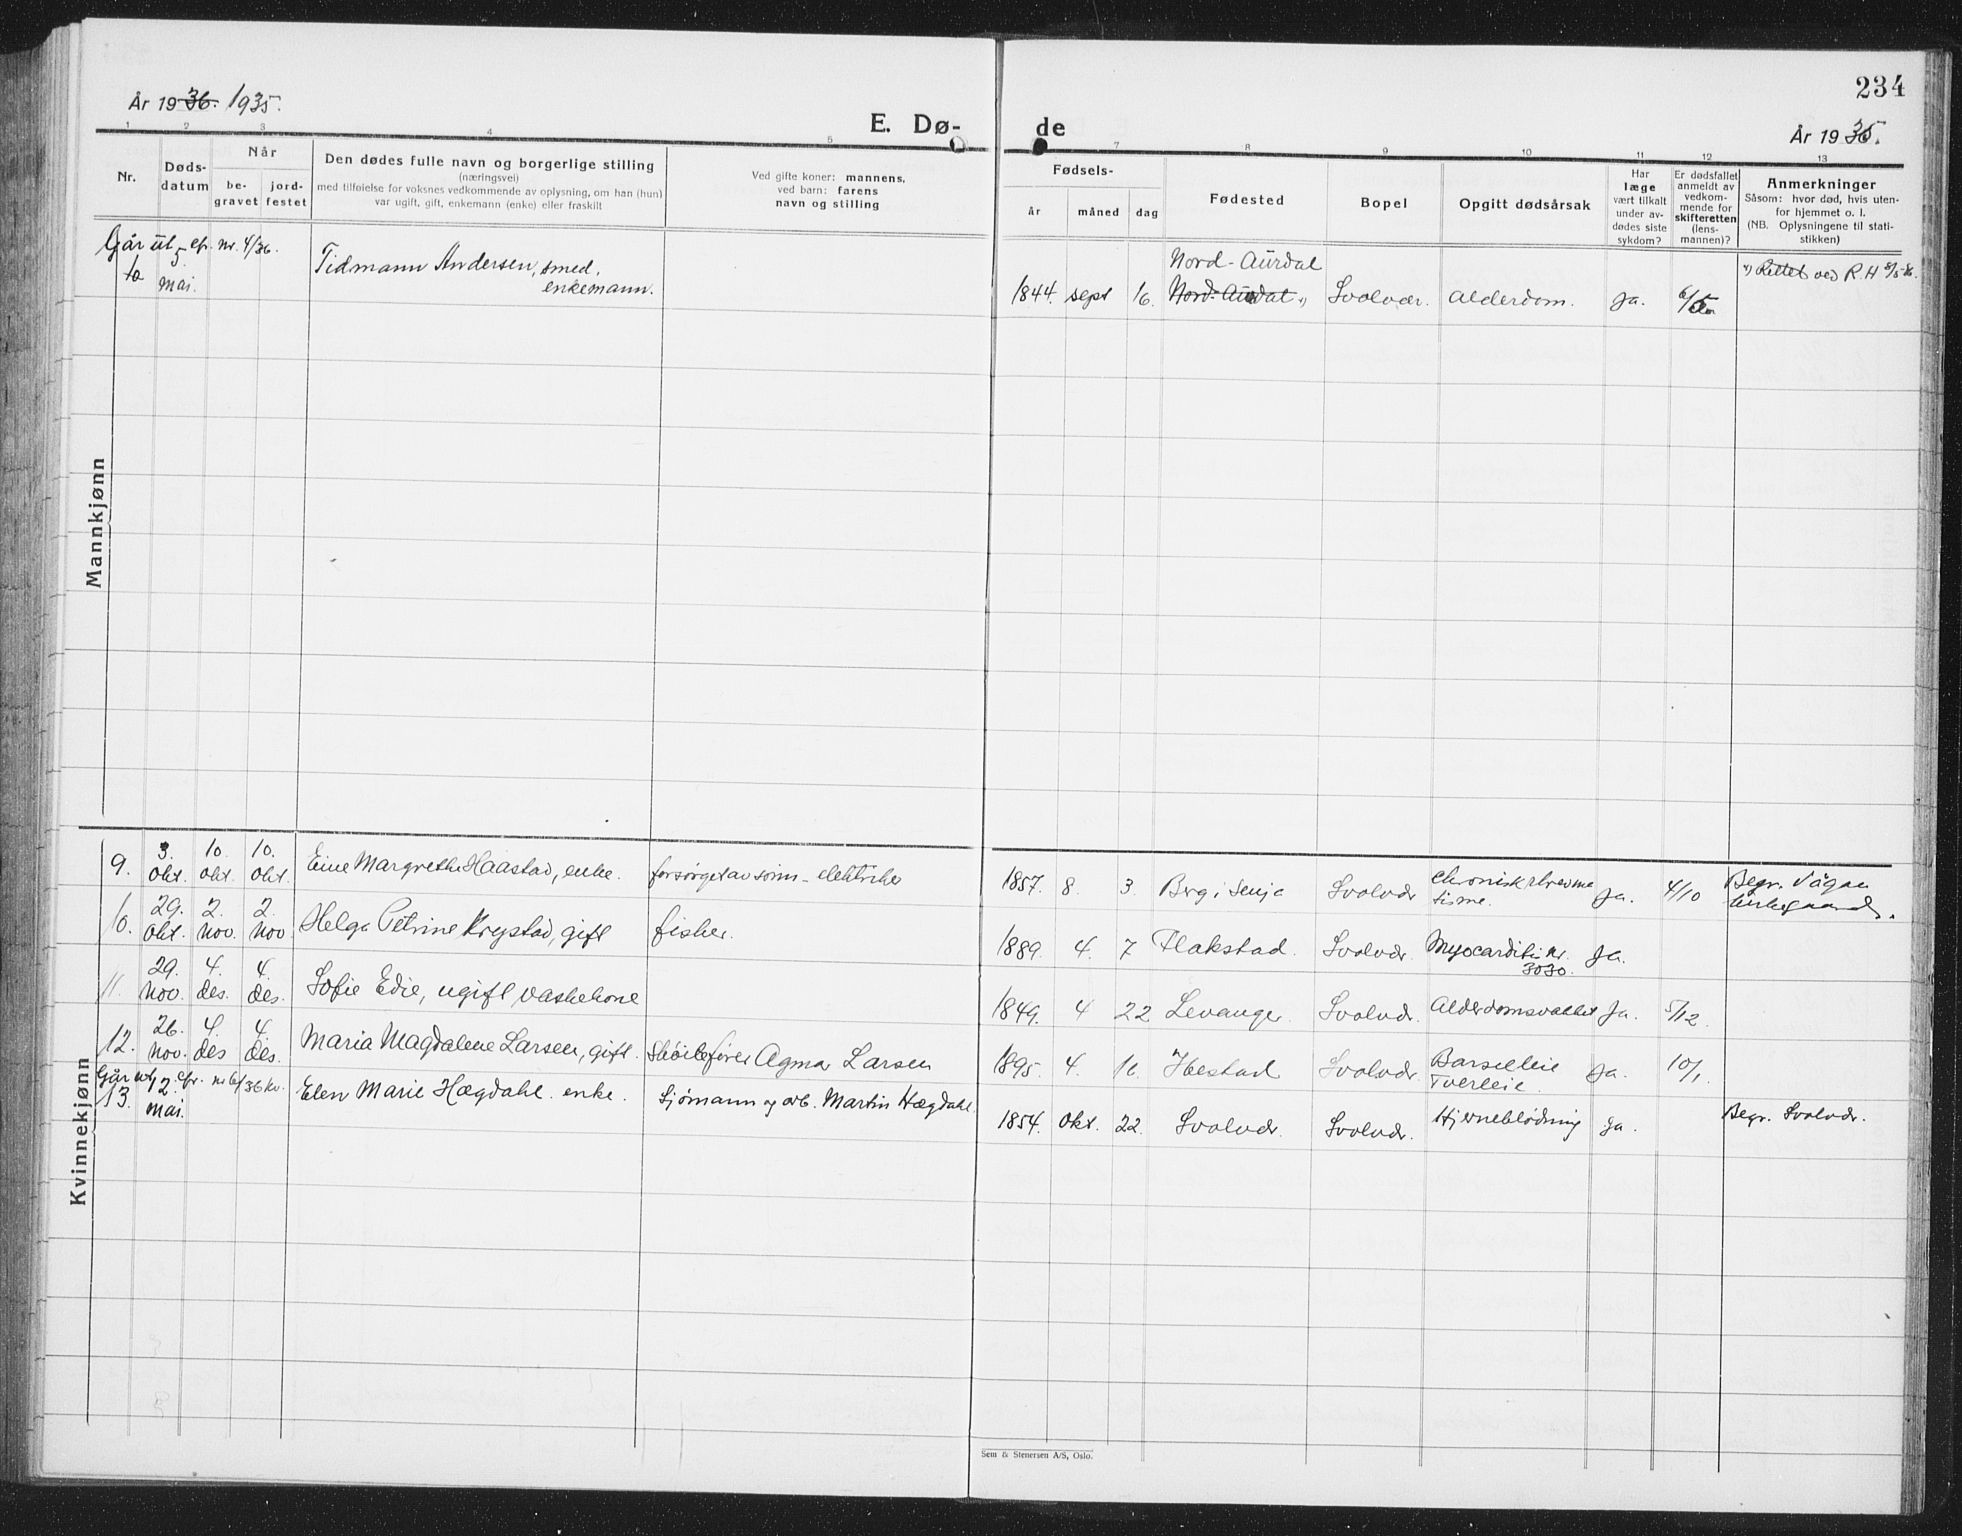 234
År 1936. 1935.
E. Dø-
de
År 1935.
1 2 3 4 5
7 8 9 10 11 12 13
Nr.
Døds-
datum
Når
be-
gravet
jord-
festet
Den dødes fulle navn og borgerlige stilling
(næringsvei)
med tilføielse for voksnes vedkommende av oplysning, om han (hun)
var ugift, gift, enkemann (enke) eller fraskilt
Ved gifte koner: mannens,
ved barn: farens
navn og stilling
Fødsels-
år måned dag
Fødested
Bopel
Opgitt dødsårsak
Har
læge
vært tilkalt
under av-
dødes siste
sykdom?
Er dødsfallet
anmeldt av
vedkom-
mende for
skifteretten
(lens-
mannen)?
Anmerkninger
Såsom: hvor død, hvis uten-
for hjemmet o. l.
(NB. Oplysningene til stati-
stikken)
Mannkjønn
Går ut cfr. nr. 4/36.
10 5. mai. Tidmann Andersen, smed,
enkemann.
Nord-Aurdal
1844. sept 16. Nord-Aurdal 1) Svolvær. Alderdom. Ja. 6/5
1) Rettet ved R.H
Kvinnekjønn
9. 3. okt. 10. okt. 10. okt. Eine Margrethe Haastad, enke. forsørget av sønn - elektriker
1857. 8. 3. Berg i Senja Svolvær chronisk rhevma
tisme. Ja. 4/10 Begr. Vågan
kirkegaard.
10. 29. okt. 2. nov. 2. nov Helga Petrine Krystad, gift fisker.
1889. 4. 7 Flakstad. Svolvær. Myocardit nr.
3030. Ja.
11. 29. nov. 4. des. 4. des. Sofie Edie, ugift vaskekone
1849. 4 22 Levanger. Svolvær. Alderdomsvakhet Ja. 5/12.
12. 26. nov. 4. des 4. des. Maria Magdalene Larsen, gift. Skøitefører Agmar Larsen
1895. 4. 16. Ibestad Svolvær. Barselleie
Tverleie. Ja. 10/1.
Går ut cfr. nr 6/36 kv.
13. 12. mai. Elen Marie Hægdahl. enke. Sjømann og arb. Martin Hægdahl.
1854. Okt. 22. Svolvær. Svolvær. Hjerneblødning Ja. Begr. Svolvær.
Sem & Stenersen A/S, Oslo.